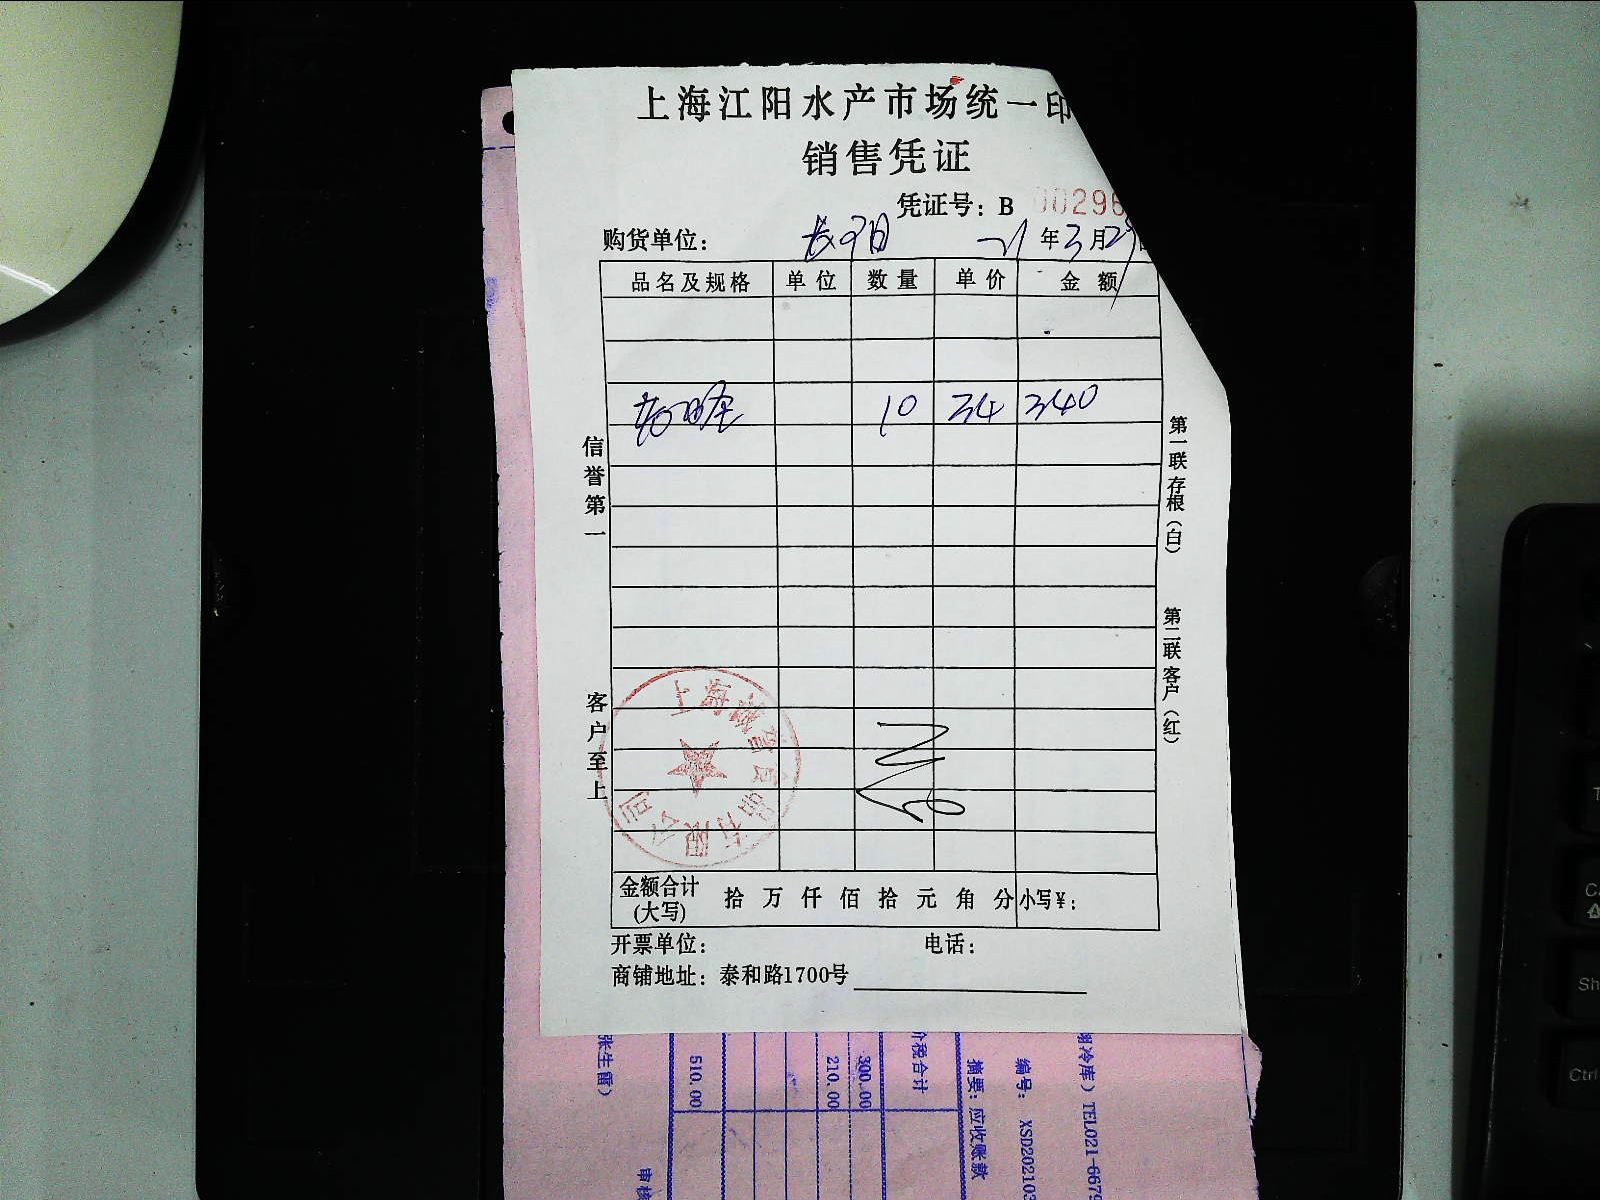 上海江阳水产市场统一印
销售凭证
凭证号：B 00296
购货单位： 21年3月29日
品名及规格 单位 数量 单价 金额
10 34 340
信誉第一
客户至上
第一联存根（白）
第二联客户（红）
上海 食品有限公司
金额合计（大写） 拾 万 仟 佰 拾 元 角 分 小写¥：
开票单位： 电话：
商铺地址：泰和路1700号
冷库）TEL021-6679
编号： XSD202103
摘要：应收账款
价税合计
300.00
210.00
510.00
张生雷）
审核
Ctrl
Sh